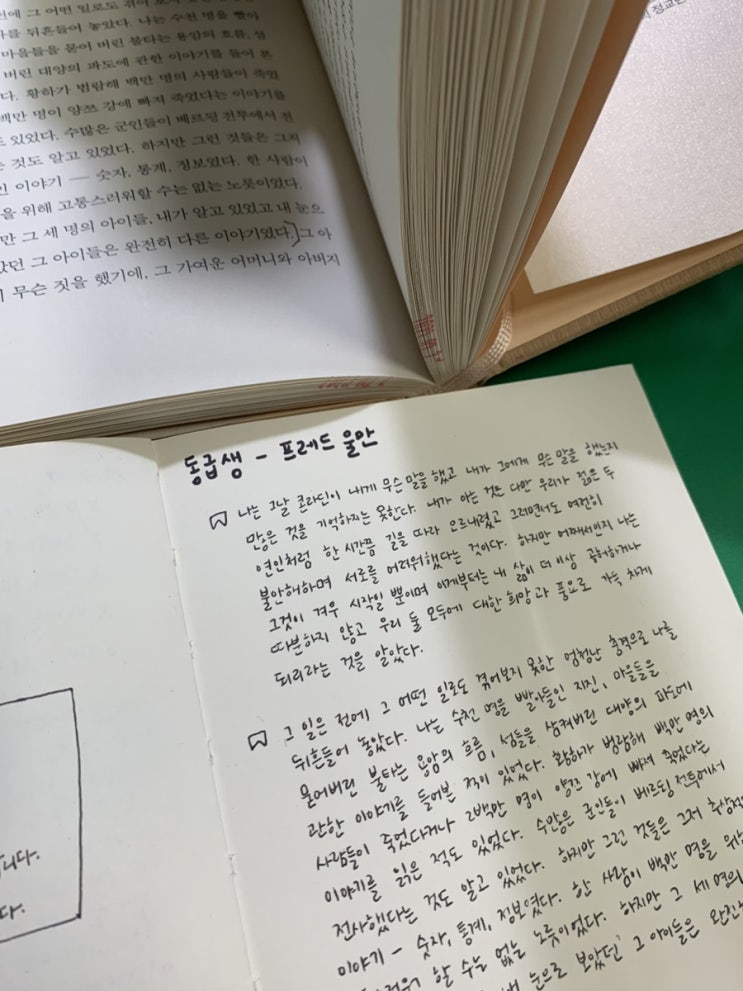 그 어떤 일로도
를 뒤흔들어 놓았다. 나는 수천 명을 빨아
마을들을 묻어 버린 불타는 용암의 흐름, 섬
버린 대양의 파도에 관한 이야기를 들어 본
다. 황하가 범람해 백만 명의 사람들이 죽었
백만 명이 양쯔 강에 빠져 죽었다는 이야기를
있었다. 수많은 군인들이 베르됭 전투에서 전
는 것도 알고 있었다. 하지만 그런 것들은 그저
인 이야기 — 숫자, 통계, 정보였다. 한 사람이
을 위해 고통스러워할 수는 없는 노릇이었다.
만 그 세 명의 아이들, 내가 알고 있었고 내 눈으
았던 그 아이들은 완전히 다른 이야기였다.] 그 아
무슨 짓을 했기에, 그 가여운 어머니와 아버지
동급생 - 프레드 울만
나는 그날 콘라딘이 내게 무슨 말을 했고 내가 그에게 무슨 말을 했는지
많은 것을 기억하지는 못한다. 내가 아는 것은 다만 우리가 젊은 두
연인처럼 한 시간쯤 길을 따라 오르내렸고 그러면서도 여전히
불안해하며 서로를 어려워했다는 것이다. 하지만 어째서인지 나는
그것이 겨우 시작일 뿐이며 이제부터는 내 삶이 더 이상 공허하거나
따분하지 않고 우리 둘 모두에 대한 희망과 풍요로 가득 차게
되리라는 것을 알았다.
그 일은 전에 그 어떤 일로도 겪어보지 못한 엄청난 충격으로 나를
뒤흔들어 놓았다. 나는 수천 명을 빨아들인 지진, 마을들을
묻어버린 불타는 용암의 흐름, 섬들을 삼켜버린 대양의 파도에
관한 이야기를 들어본 적이 있었다. 황하가 범람해 백만 명의
사람들이 죽었다거나 2백만 명이 양쯔 강에 빠져 죽었다는
이야기를 읽은 적도 있었다. 수많은 군인들이 베르됭 전투에서
전사했다는 것도 알고 있었다. 하지만 그런 것들은 그저 추상적
이야기 - 숫자, 통계, 정보였다. 한 사람이 백만 명을 위
할 수는 없는 노릇이었다. 하지만 그 세 명의
내 눈으로 보았던 그 아이들은 완전
니다.
다.